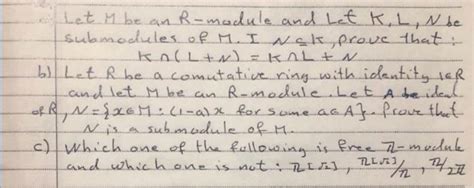 Let M be an R-module and Let K, L, N be
submodules of M. I N ⊆ K, prove that :
K ∩ (L + N) = K ∩ L + N
b) Let R be a comutative ring with identity 1∈R
and let M be an R-module. Let A be ideal
of R, N = {x∈M : (1-a)x for some a∈A}. Prove that
N is a submodule of M.
c) Which one of the following is free ℤ-module
and which one is not : ℤ[√2], ℤ[√2]/ℤ, ℤ/2ℤ